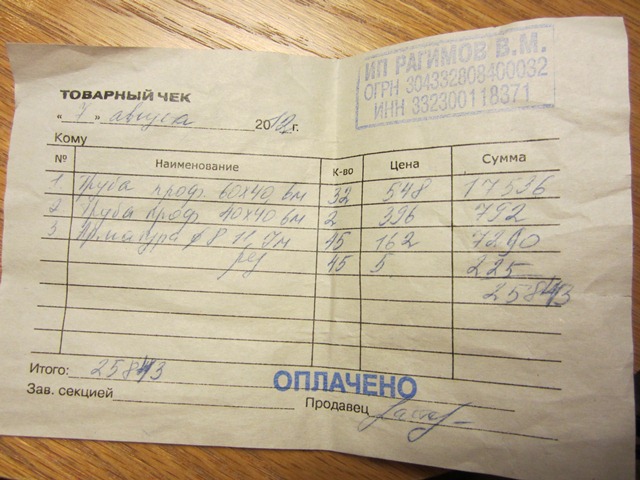 ИП РАГИМОВ В.М.
ОГРН 304332808400032
ИНН 332300118371
ТОВАРНЫЙ ЧЕК
"7" августа 2012 г.
Кому
№ Наименование К-во Цена Сумма
1 Труба проф. 60х40, 6м 32 548 17536
2 Труба проф. 40х40 6м 2 396 792
3 Арматура ф8 11,7м 45 162 7290
рез 45 5 225
25843
Итого: 25843
ОПЛАЧЕНО
Зав. секцией
Продавец